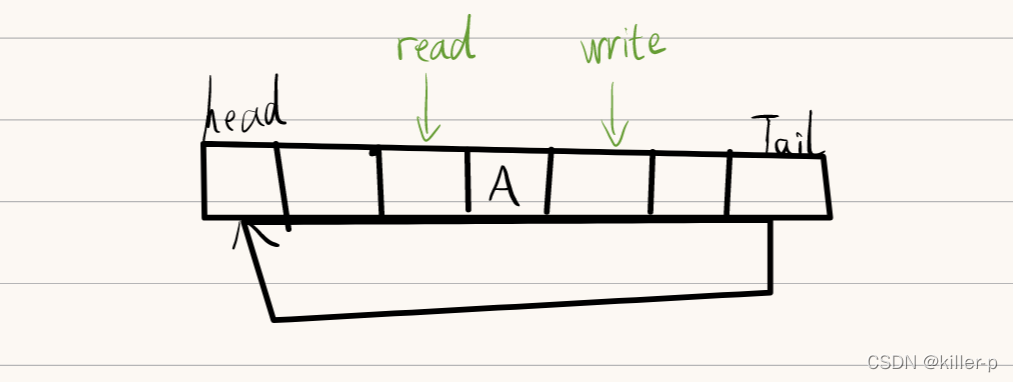 read write
head Tail
A
CSDN @killer-p